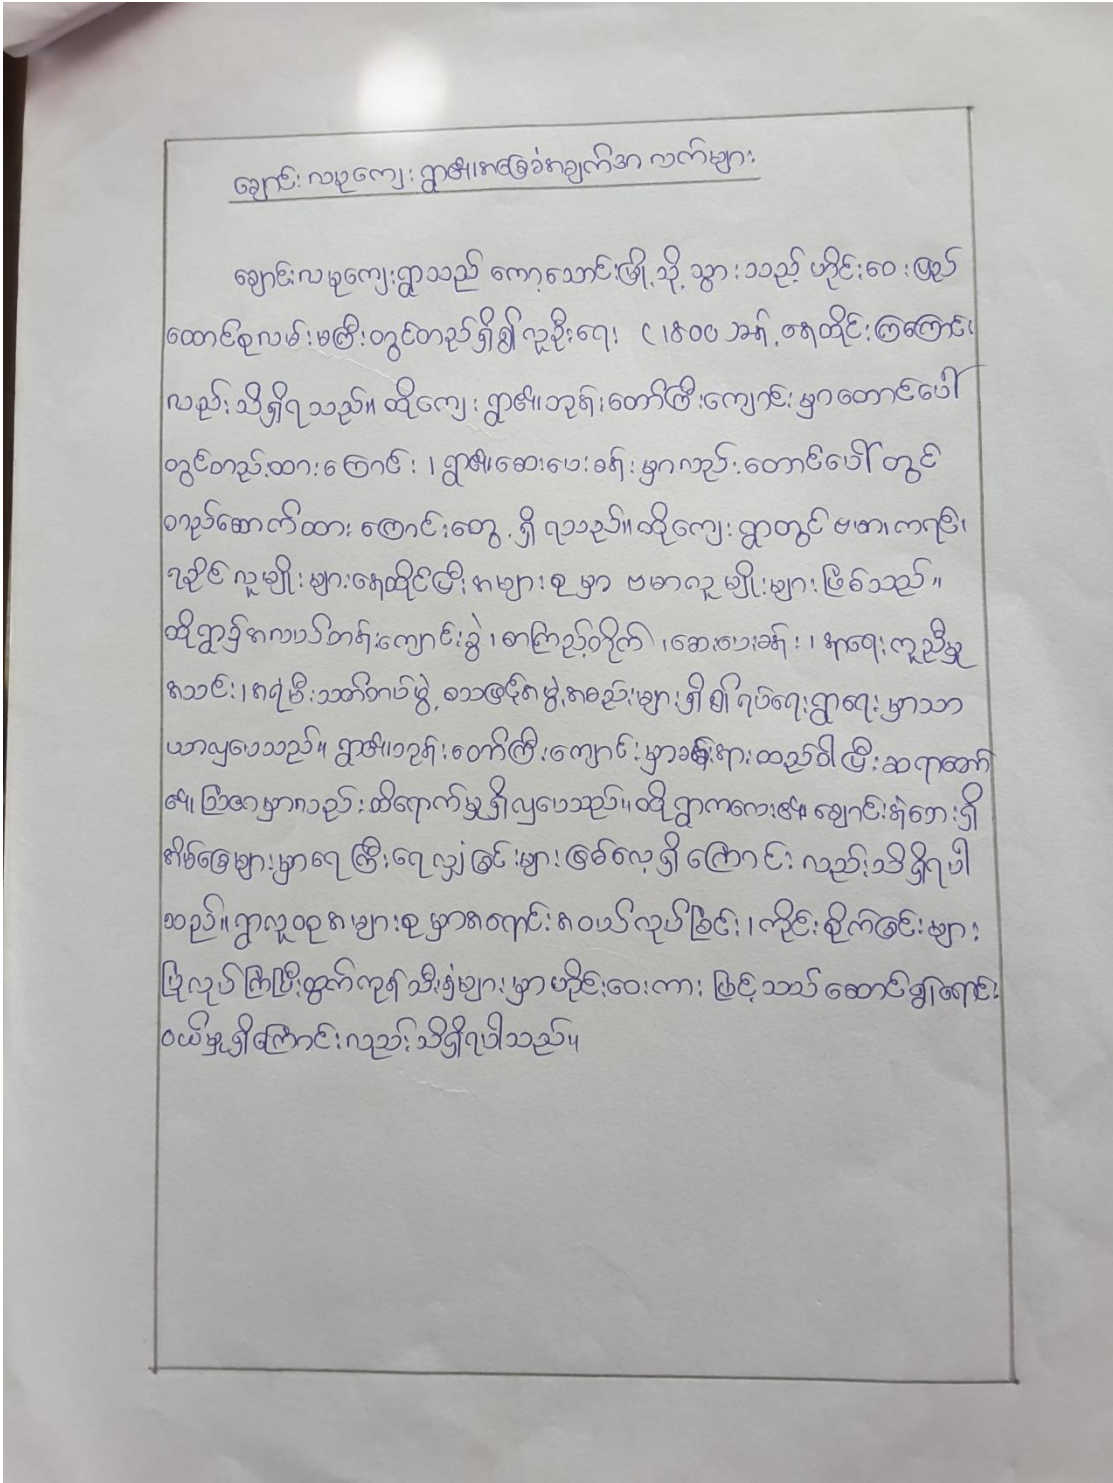 ချောင်းလမုကျေးရွာ၏အခြေခံအချက်အလက်များ
ချောင်းလမုကျေးရွာသည် ကော့သောင်းမြို့သို့ သွားသည့် ဟိုင်းဝေး ပြည်
ထောင်စုလမ်းမကြီးတွင်တည်ရှိ၍ လူဦးရေ (၁၈၀၀)ခန့် နေထိုင်ကြကြောင်း
လည်း သိရှိရသည်။ ထိုကျေးရွာ၏ဘုန်းတော်ကြီးကျောင်းမှာတောင်ပေါ်
တွင်တည်ထားကြောင်း၊ ရွာ၏ဆေးပေးခန်းမှာလည်းတောင်ပေါ်တွင်
တည်ဆောက်ထားကြောင်းတွေ့ရှိရသည်။ ထိုကျေးရွာတွင် ဗမာ၊ကရင်၊
ရခိုင်လူမျိုးများနေထိုင်ပြီး အများစုမှာ ဗမာလူမျိုးများဖြစ်သည်။
ထိုရွာ၌အလယ်တန်းကျောင်းခွဲ၊ စာကြည့်တိုက်၊ ဆေးပေးခန်း၊ နာရေးကူညီမှု
အသင်း၊ အရံမီးသတ်တပ်ဖွဲ့ စသဖြင့်အဖွဲ့အစည်းများရှိ၍ ရပ်ရေးရွာရေးမှာသာ
ယာလှပေသည်။ ရွာ၏ဘုန်းတော်ကြီးကျောင်းမှာခမ်းနားထည်ဝါပြီးဆရာတော်
၏ဩဇာမှာလည်းထိရောက်မှုရှိလှပေသည်။ ထိုရွာကလေး၏ ချောင်းနံဘေးရှိ
အိမ်ခြေများမှာရေကြီးရေလျှံခြင်းများဖြစ်လေ့ရှိကြောင်းလည်းသိရှိရပါ
သည်။ ရွာလူထုအများစုမှာအရောင်းအဝယ်လုပ်ခြင်း၊ ကိုင်းစိုက်ခြင်းများ
ပြုလုပ်ကြပြီးထွက်ကုန်သီးနှံများမှာဟိုင်းဝေးကားဖြင့်သယ်ဆောင်၍ရောင်း
ဝယ်မှုရှိကြောင်းလည်းသိရှိရပါသည်။